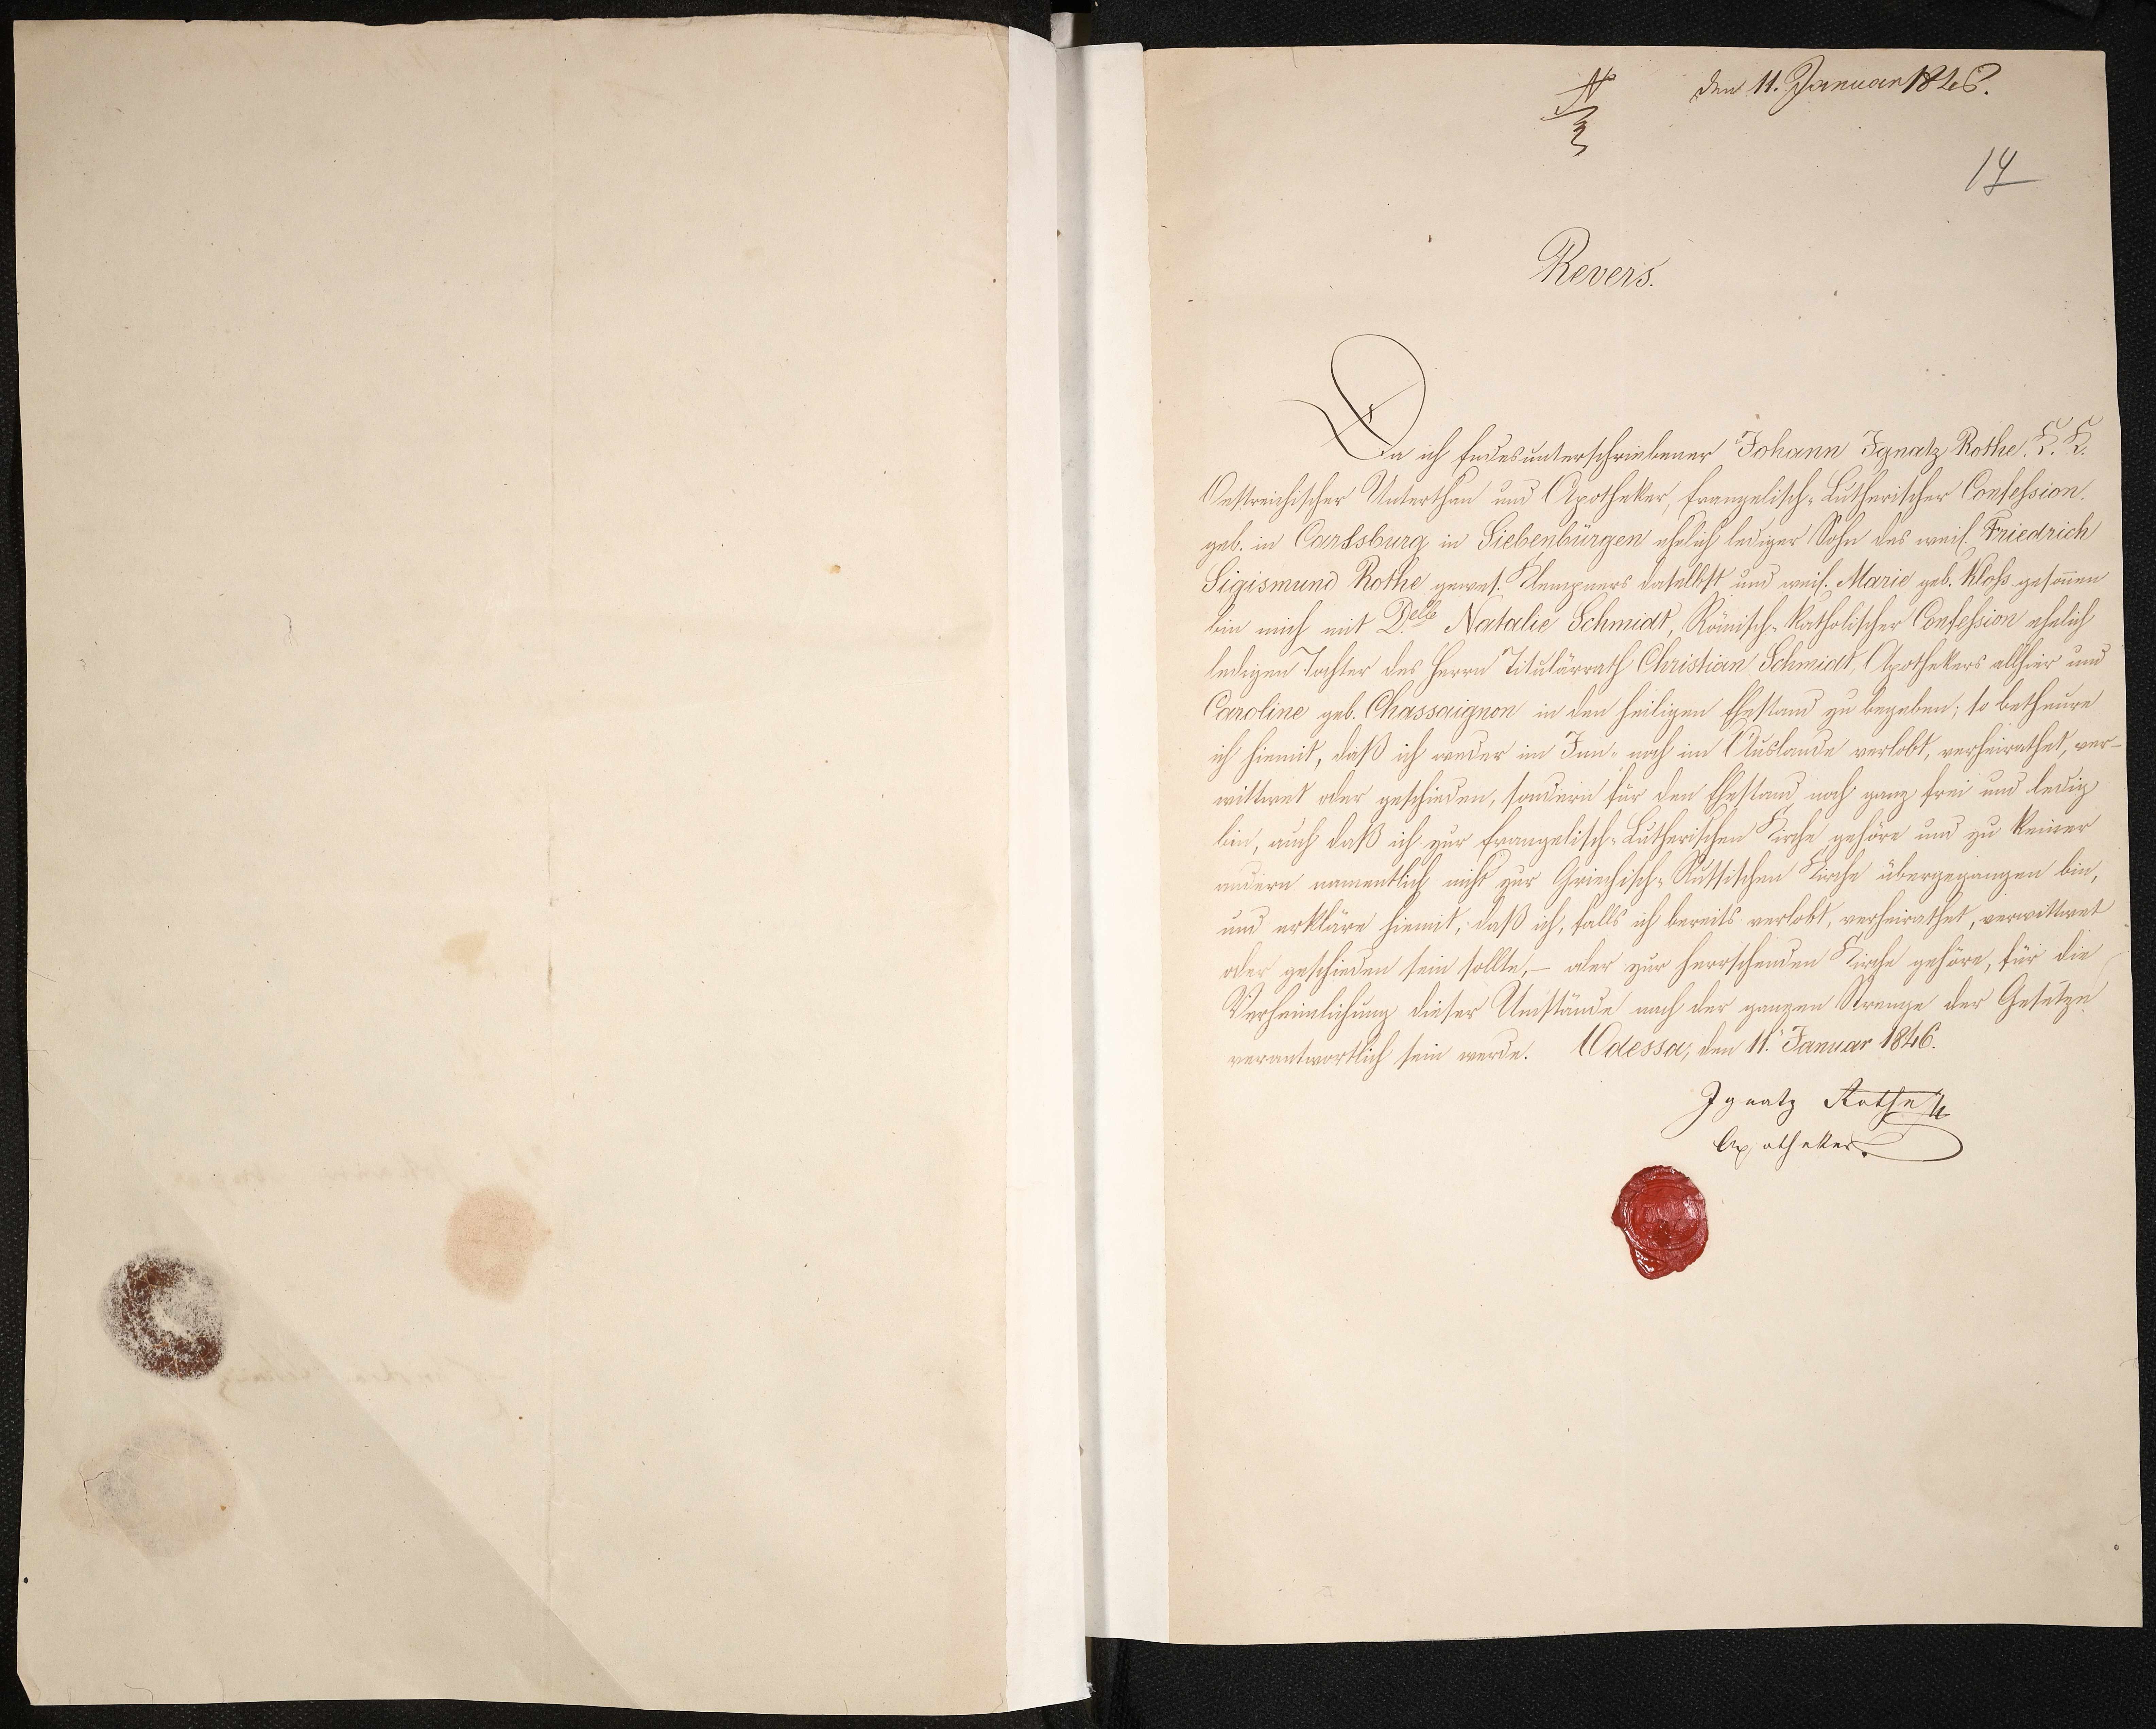 den 11. Januar 1846.
N 3
14
Revers.
Da ich Endesunterschriebener Johann Ignatz Rothe K. K.
Oestreichischer Unterthan und Apotheker, Evangelisch-Lutherischer Confeßion.
geb. in Carlsburg in Siebenbürgen ehelich lediger Sohn des weil. Friedrich
Sigismund Rothe gewes. Klempners daselbst und weil. Marie geb. Kloß gesonnen
bin mich mit Delle Natalie Schmidt, Römisch-Katholischer Confeßion ehelich
ledigen Tochter des Herrn Titulärrath Christian Schmidt, Apothekers allhier und
Caroline geb. Chassaignon in den heiligen Ehestand zu begeben; so betheure
ich hiemit, daß ich weder im In- noch im Auslande verlobt, verheirathet, ver-
wittwet oder geschieden, sondern für den Ehestand noch ganz frei und ledig
bin, auch daß ich zur Evangelisch-Lutherischen Kirche gehöre und zu keiner
andern namentlich nicht zur Griechisch-Russischen Kirche übergegangen bin,
und erkläre hiemit, daß ich, falls ich bereits verlobt, verheirathet, verwittwet
oder geschieden sein sollte, – oder zur herrschenden Kirche gehöre, für die
Verheimlichung dieser Umstände nach der ganzen Strenge der Gesetze
verantwortlich sein werde. Odessa, den 11. Januar 1846.
Ignatz Rothe
Apotheker.